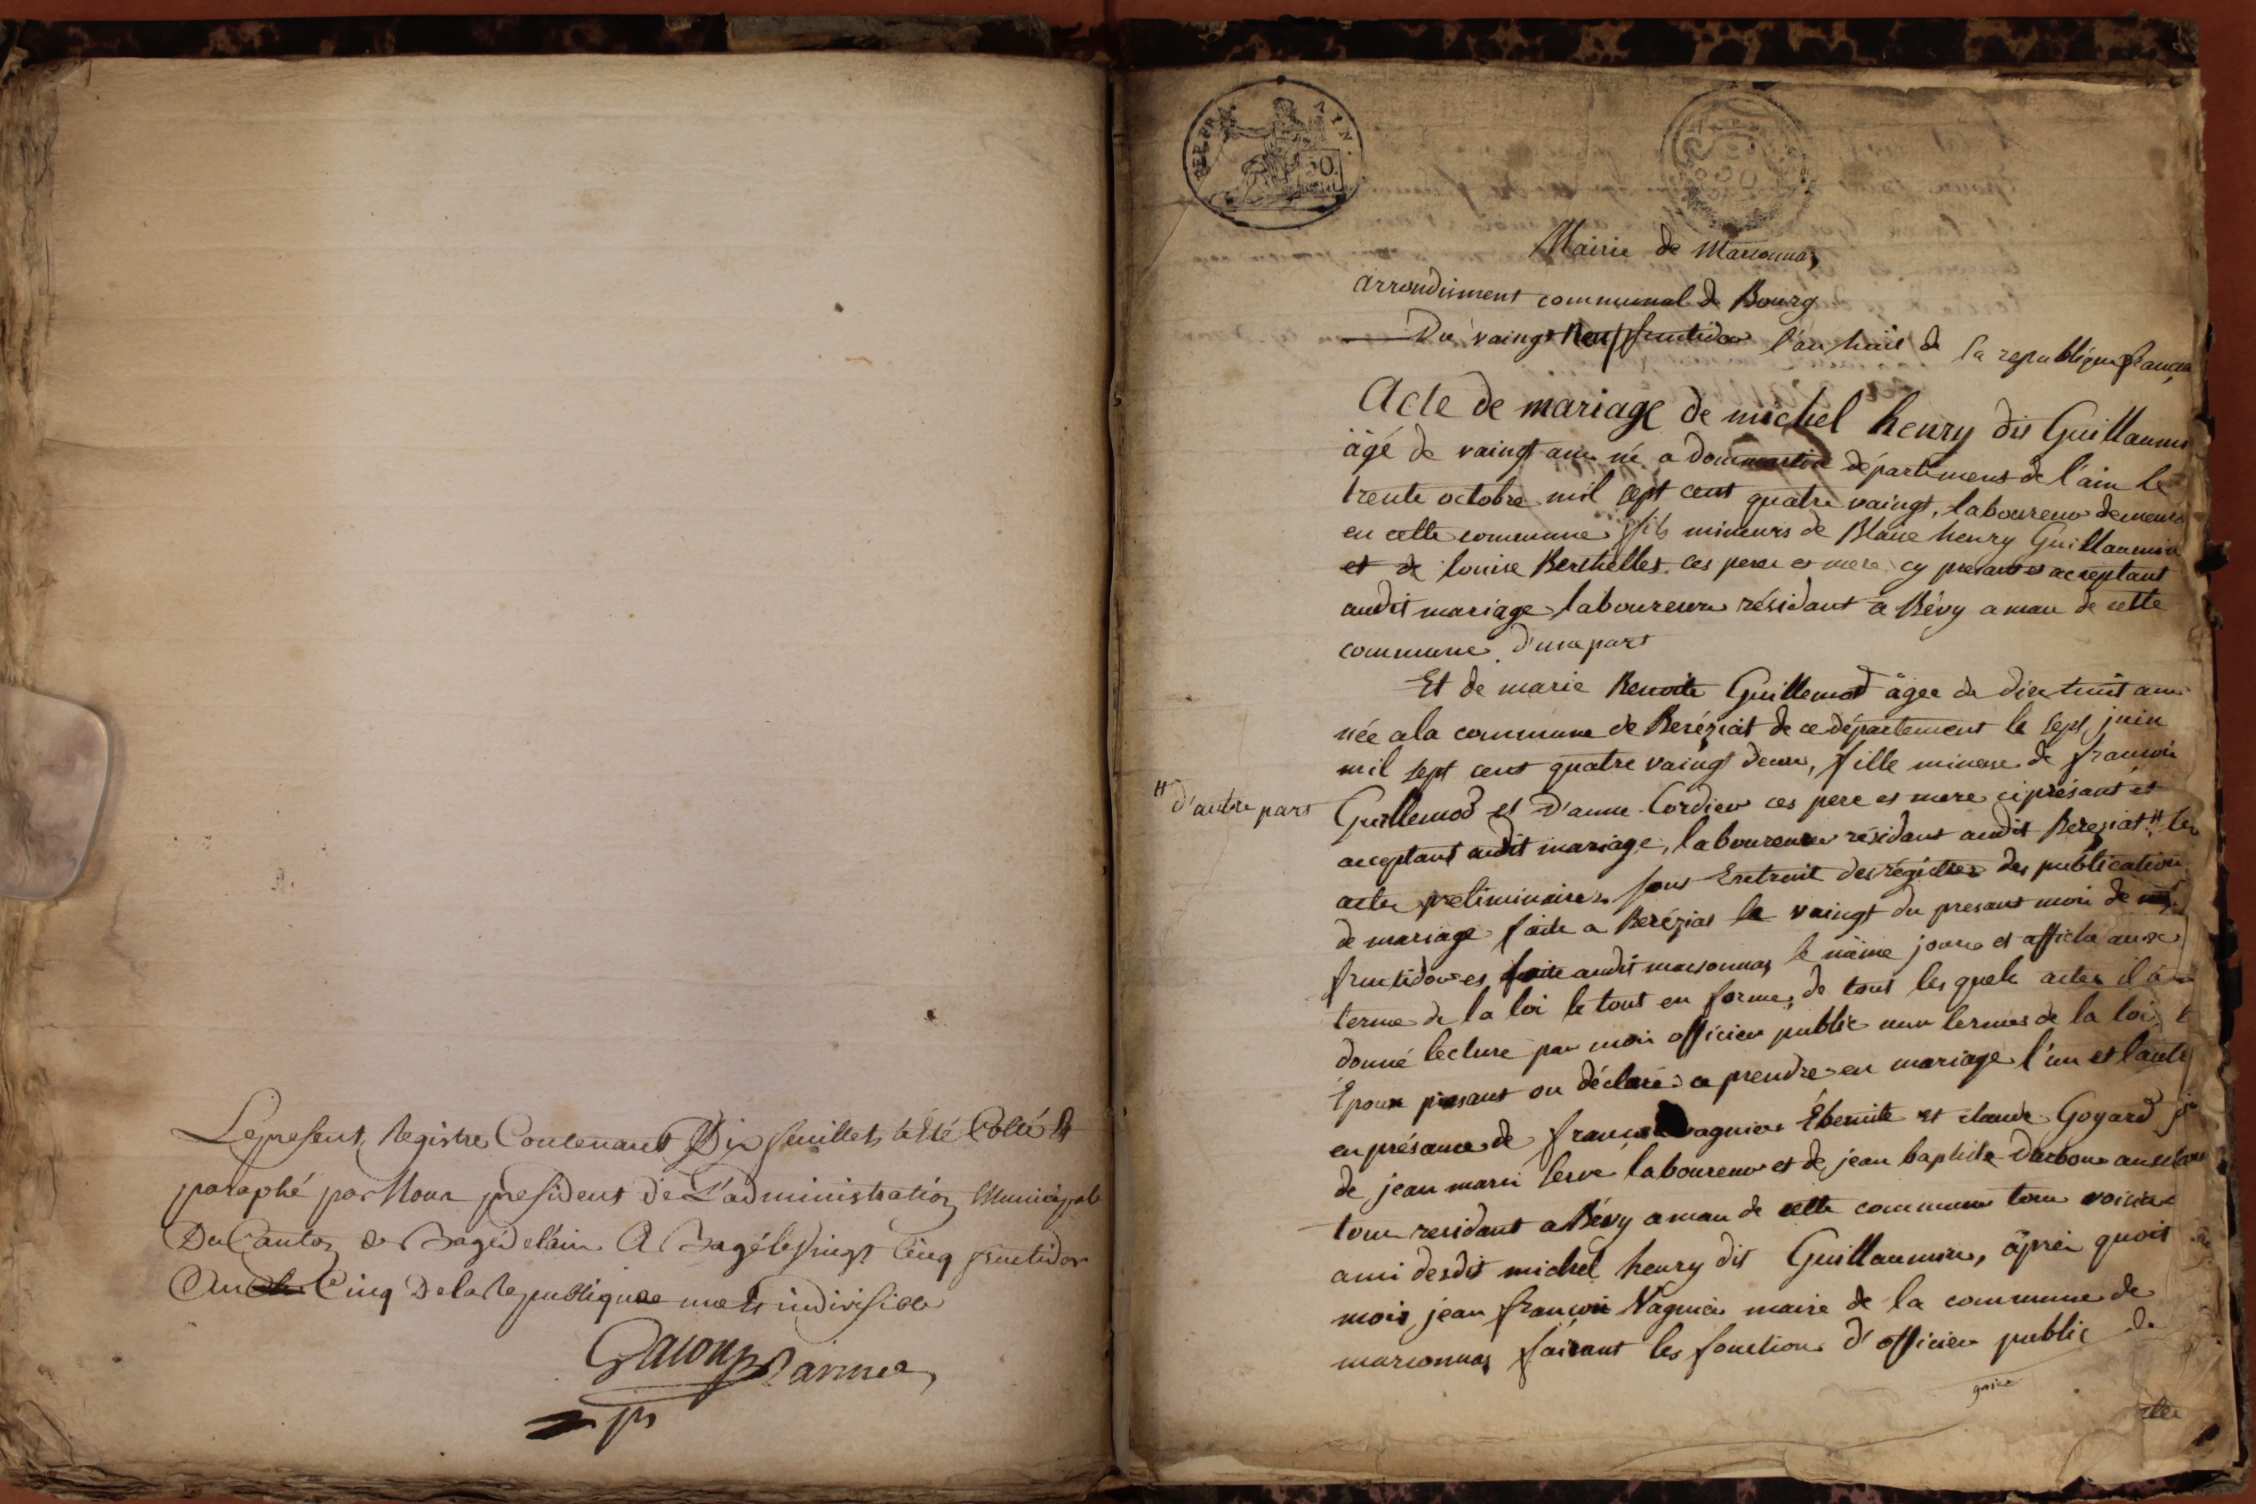 Le present Registre Contenant Dix feuillets a été Cotté &
paraphé par Nous president de L'administration Municipale
Du Canton de Bagé delain A Bagé le vingt Cinq fructidor
An Cinq De la Republique une et indivisible
REP. FRA. AIN.
50
Mairie de Marsonnas
arrondisiment communal de Bourg
Du vaingt neuf fructidor l'an huit de la republique francai
Acte de mariage de michel henry dit Guillaumin
âgé de vaingt ans né a dommartin département de l'ain le
trente octobre mil sept cent quatre vaingt, laboureur demeura
en cette commune fils mineurs de Blaise henry Guillaumin
et de louise Berthellet ces pere et mere cy presant et acceptant
audit mariage laboureurs résidant a Bévy aman de cette
commune d'une part
Et de marie Benoite Guillemod âgee de dix huit ans
née a la commune de Beréziat de ce département le sept juin
mil sept cent quatre vaingt deux, fille mineure de francois
" d'autre part
Guillemod et D'anne Cordier ces pere et mere ci présant et
acceptant audit mariage, laboureurs résidant audit Bereziat " les
actes preliminaires sont Extrait des régistres des publication
de mariage faite a Beréziat le vaingt du presant mois de
fructidor et faite audit marsonnas le même jours et affiché aux
terme de la loi le tout en forme, de tout les quels actes il a
donné lecture par moi officier public aux termes de la loi,
Epoux presant on déclaré a prendre en mariage l'un et l'autre
en présance de francois vagnier Ebeniste et claude Goyard
de jean marie serve laboureur et de jean baptiste Darbon
tous residant a Bévy aman de cette commune tous voisins
ami desdit michel henry dit Guillaumin, âprés quoit
mois jean françois Vagnier maire de la commune de
marsonnas faisant les fonctions d'officier public de